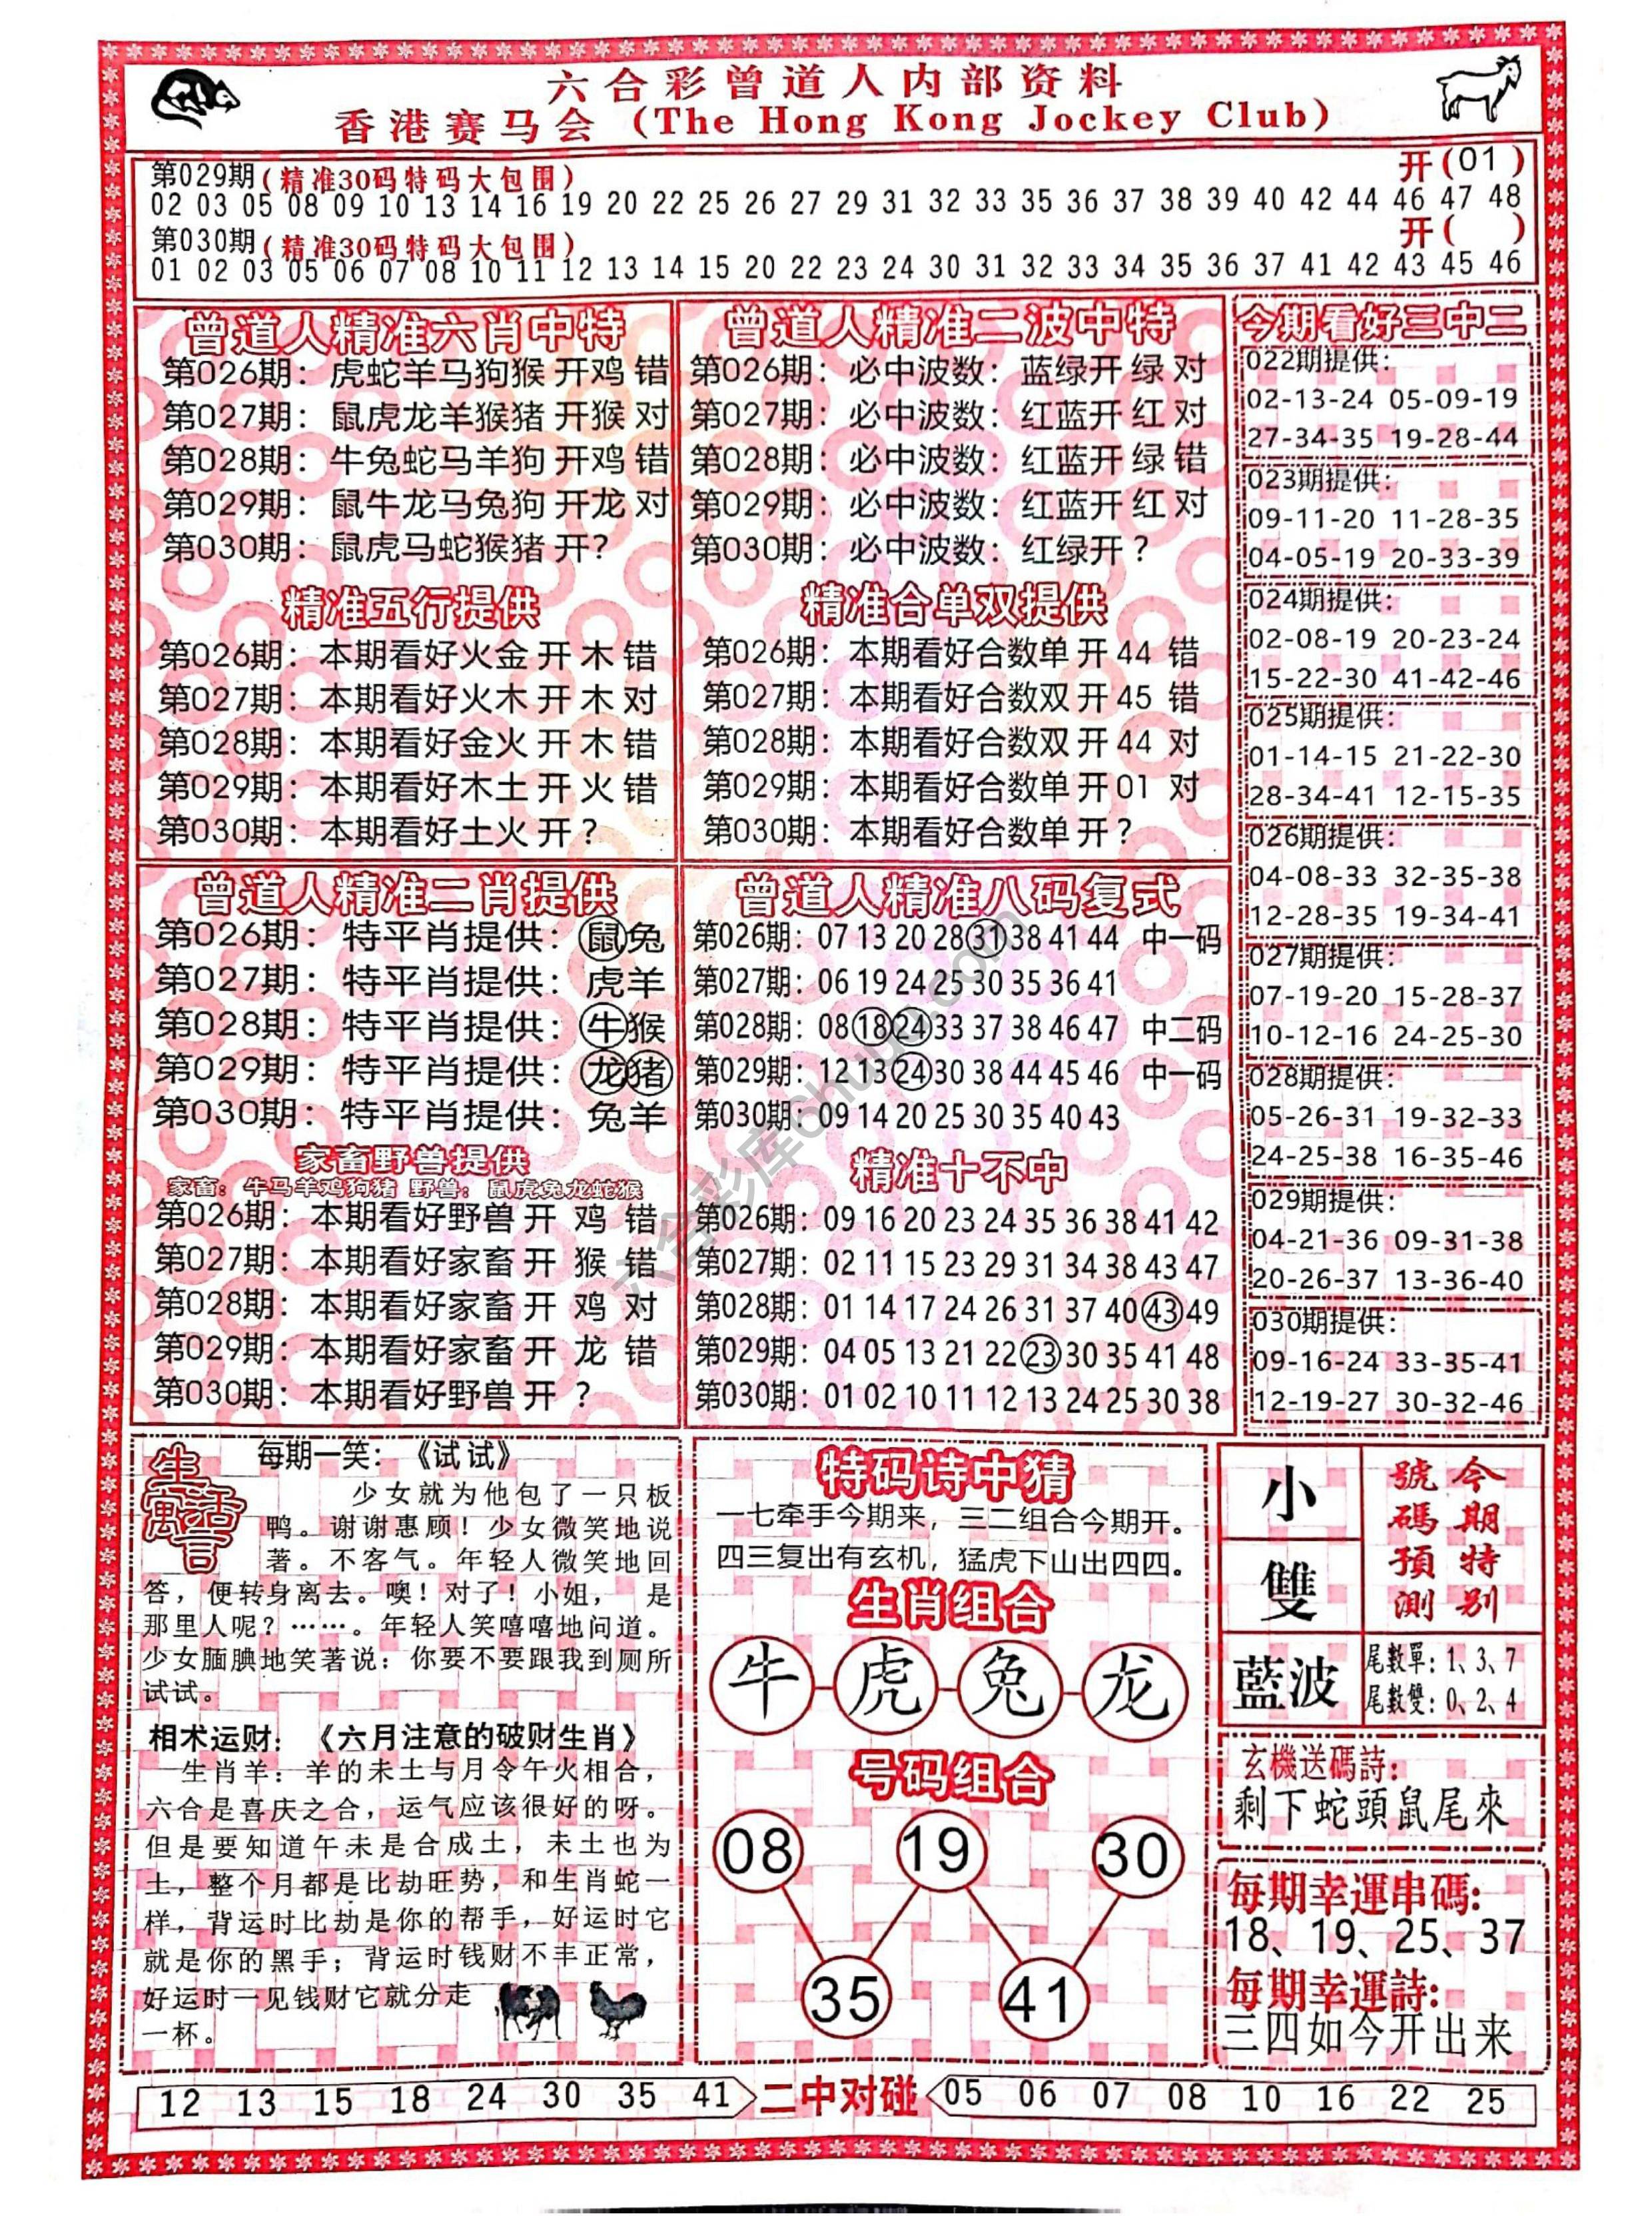 六合彩曾道人内部资料
香港赛马会 (The Hong Kong Jockey Club)
第029期(精准30码特码大包围) 开(01)
02 03 05 08 09 10 13 14 16 19 20 22 25 26 27 29 31 32 33 35 36 37 38 39 40 42 44 46 47 48
第030期(精准30码特码大包围) 开( )
01 02 03 05 06 07 08 10 11 12 13 14 15 20 22 23 24 30 31 32 33 34 35 36 37 41 42 43 45 46
曾道人精准六肖中特
第026期：虎蛇羊马狗猴 开鸡 错
第027期：鼠虎龙羊猴猪 开猴 对
第028期：牛兔蛇马羊狗 开鸡 错
第029期：鼠牛龙马兔狗 开龙 对
第030期：鼠虎马蛇猴猪 开?
精准五行提供
第026期：本期看好火金 开 木 错
第027期：本期看好火木 开 木 对
第028期：本期看好金火 开 木 错
第029期：本期看好木土 开 火 错
第030期：本期看好土火 开 ?
曾道人精准二波中特
第026期：必中波数：蓝绿开 绿 对
第027期：必中波数：红蓝开 红 对
第028期：必中波数：红蓝开 绿 错
第029期：必中波数：红蓝开 红 对
第030期：必中波数：红绿开 ?
精准合单双提供
第026期：本期看好合数单 开 44 错
第027期：本期看好合数双 开 45 错
第028期：本期看好合数双 开 44 对
第029期：本期看好合数单 开 01 对
第030期：本期看好合数单 开?
今期看好三中二
022期提供:
02-13-24 05-09-19
27-34-35 19-28-44
023期提供:
09-11-20 11-28-35
04-05-19 20-33-39
024期提供:
02-08-19 20-23-24
15-22-30 41-42-46
025期提供:
01-14-15 21-22-30
28-34-41 12-15-35
026期提供:
04-08-33 32-35-38
12-28-35 19-34-41
027期提供:
07-19-20 15-28-37
10-12-16 24-25-30
028期提供:
05-26-31 19-32-33
24-25-38 16-35-46
029期提供:
04-21-36 09-31-38
20-26-37 13-36-40
030期提供:
09-16-24 33-35-41
12-19-27 30-32-46
曾道人精准二肖提供
第026期：特平肖提供：鼠兔
第027期：特平肖提供：虎羊
第028期：特平肖提供：牛猴
第029期：特平肖提供：龙猪
第030期：特平肖提供：兔羊
家畜野兽提供
家畜：牛马羊鸡狗猪 野兽：鼠虎兔龙蛇猴
第026期：本期看好野兽 开 鸡 错
第027期：本期看好家畜 开 猴 错
第028期：本期看好家畜 开 鸡 对
第029期：本期看好家畜 开 龙 错
第030期：本期看好野兽 开 ?
曾道人精准八码复式
第026期：07 13 20 28 37 38 41 44 中一码
第027期：06 19 24 25 30 35 36 41
第028期：08 18 24 33 37 38 46 47 中二码
第029期：12 13 24 30 38 44 45 46 中一码
第030期：09 14 20 25 30 35 40 43
精准十不中
第026期：09 16 20 23 24 35 36 38 41 42
第027期：02 11 15 23 29 31 34 38 43 47
第028期：01 14 17 24 26 31 37 40 43 49
第029期：04 05 13 21 22 23 30 35 41 48
第030期：01 02 10 11 12 13 24 25 30 38
六合彩库6huu.com
生活寓言
每期一笑：《试试》
少女就为他包了一只板
鸭。谢谢惠顾！少女微笑地说
著。不客气。年轻人微笑地回
答，便转身离去。噢！对了！小姐，是
那里人呢？……。年轻人笑嘻嘻地问道。
少女腼腆地笑著说：你要不要跟我到厕所
试试。
相术运财：《六月注意的破财生肖》
生肖羊：羊的未土与月令午火相合，
六合是喜庆之合，运气应该很好的呀。
但是要知道午未是合成土，未土也为
土，整个月都是比劫旺势，和生肖蛇一
样，背运时比劫是你的帮手，好运时它
就是你的黑手；背运时钱财不丰正常，
好运时一见钱财它就分走
一杯。
特码诗中猜
一七牵手今期来，三二组合今期开。
四三复出有玄机，猛虎下山出四四。
生肖组合
牛-虎-兔-龙
号码组合
08 19 30
35 41
小
雙
藍波
今期特别
號碼預測
尾數單：1、3、7
尾數雙：0、2、4
玄機送碼詩:
剩下蛇頭鼠尾來
每期幸運串碼:
18、19、25、37
每期幸運詩:
三四如今开出来
12 13 15 18 24 30 35 41 二中对碰 05 06 07 08 10 16 22 25